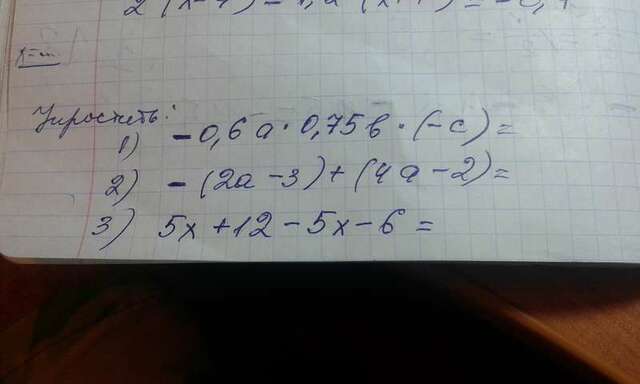 Упростить:
1) -0,6a · 0,75в · (-с) =
2) -(2а - 3) + (4а - 2) =
3) 5х + 12 - 5х - 6 =